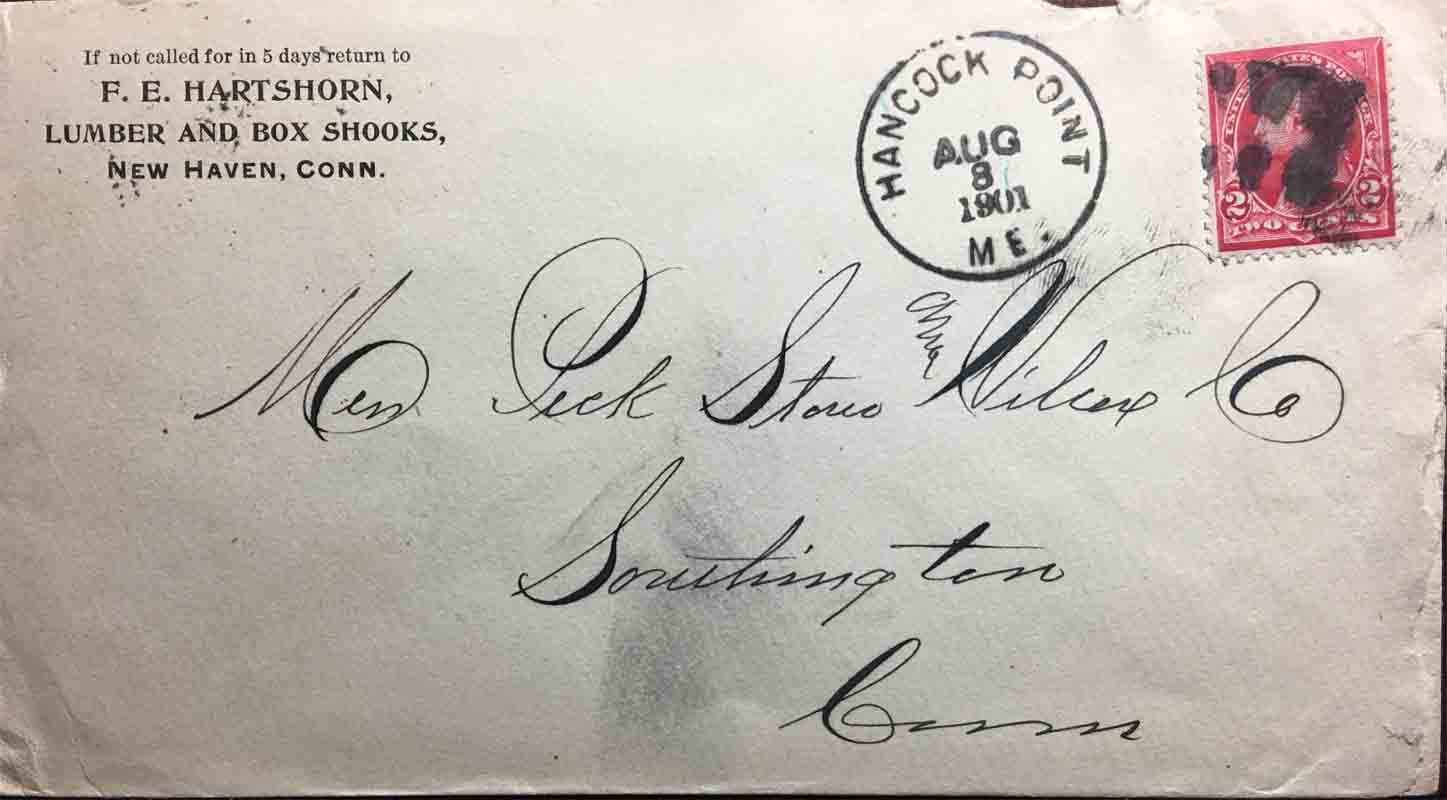 If not called for in 5 days return to
F. E. HARTSHORN,
LUMBER AND BOX SHOOKS,
NEW HAVEN, CONN.
HANCOCK POINT
AUG
8
1901
ME.
UNITED STATES POSTAGE
2 2
TWO CENTS
Peck Stow Wilcox Co
Southington
Conn